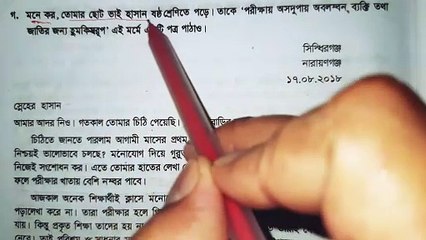 গ. মনে কর, তোমার ছোট ভাই হাসান ষষ্ঠ শ্রেণিতে পড়ে। তাকে 'পরীক্ষায় অসদুপায় অবলম্বন, ব্যক্তি তথা
জাতির জন্য হুমকিস্বরূপ' এই মর্মে পত্র পাঠাও।
সিদ্ধিরগঞ্জ
নারায়ণগঞ্জ
১৭.০৮.২০১৮
স্নেহের হাসান
আমার আদর নিও। গতকাল তোমার চিঠি পেয়েছি।
চিঠিতে জানতে পারলাম আগামী মাসের প্রথম
নিশ্চয়ই ভালোভাবে চলছে? মনোযোগ দিয়ে
নিজেই সংশোধন কর। এতে তোমার হাতের লেখা
ফলে পরীক্ষার খাতায় বেশি নম্বর পাবে।
আজকাল অনেক শিক্ষার্থীই ক্লাসে মনো
পড়ালেখা করে না। তারা পরীক্ষার হলে
যায়। কিন্তু প্রকৃত শিক্ষা তাদের হয় না
নেবে। তাই পরিশ্রম ও সাধনার